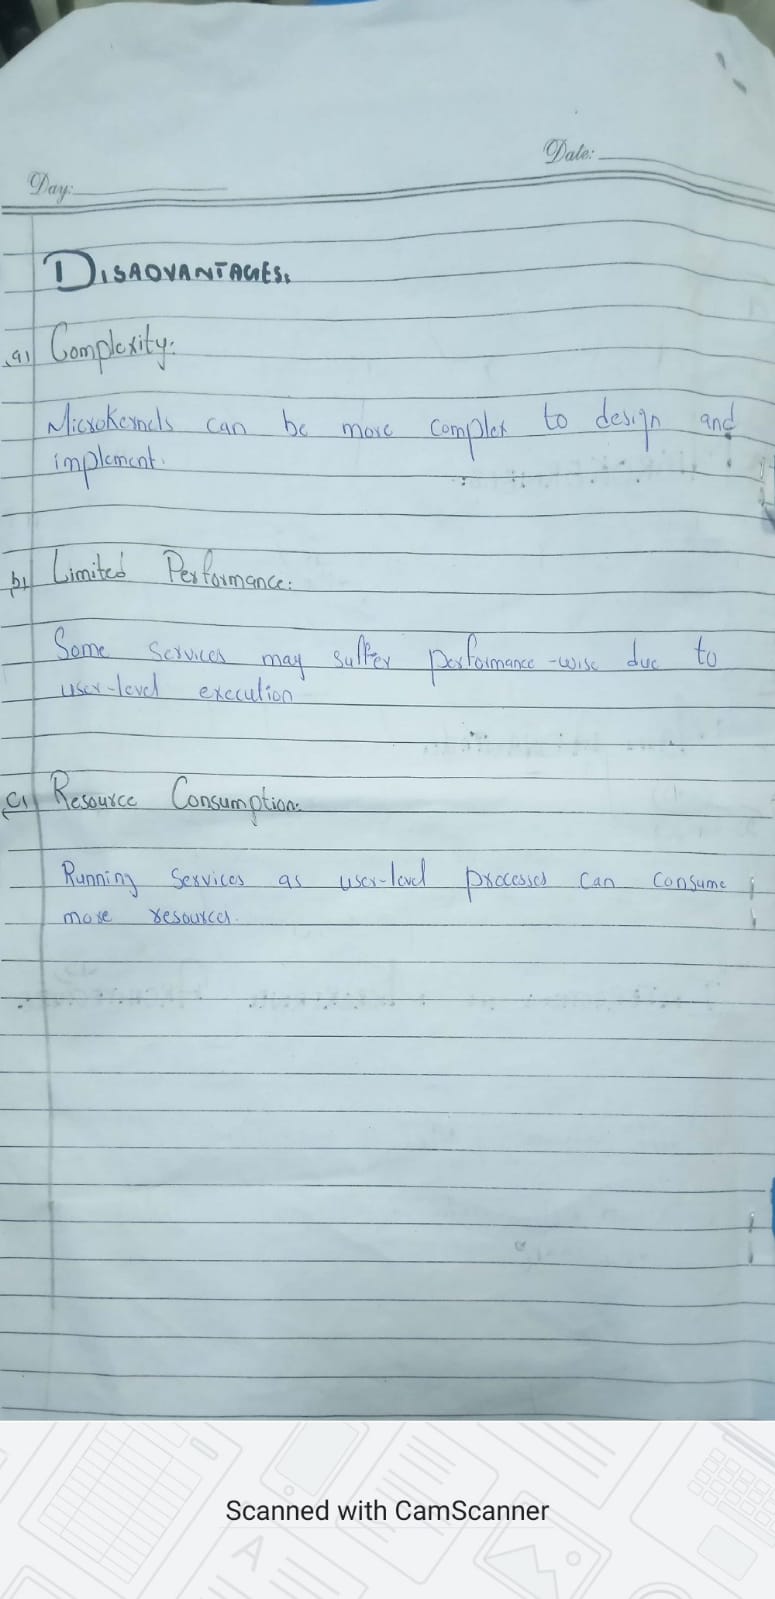 Date:
Day:
DISADVANTAGES.
a) Complexity:
Microkernels can be more complex to design and
implement.
b) Limited Performance:
Some services may suffer performance-wise due to
user-level execution
c) Resource Consumption:
Running Services as user-level processes can consume
more resources.
Scanned with CamScanner